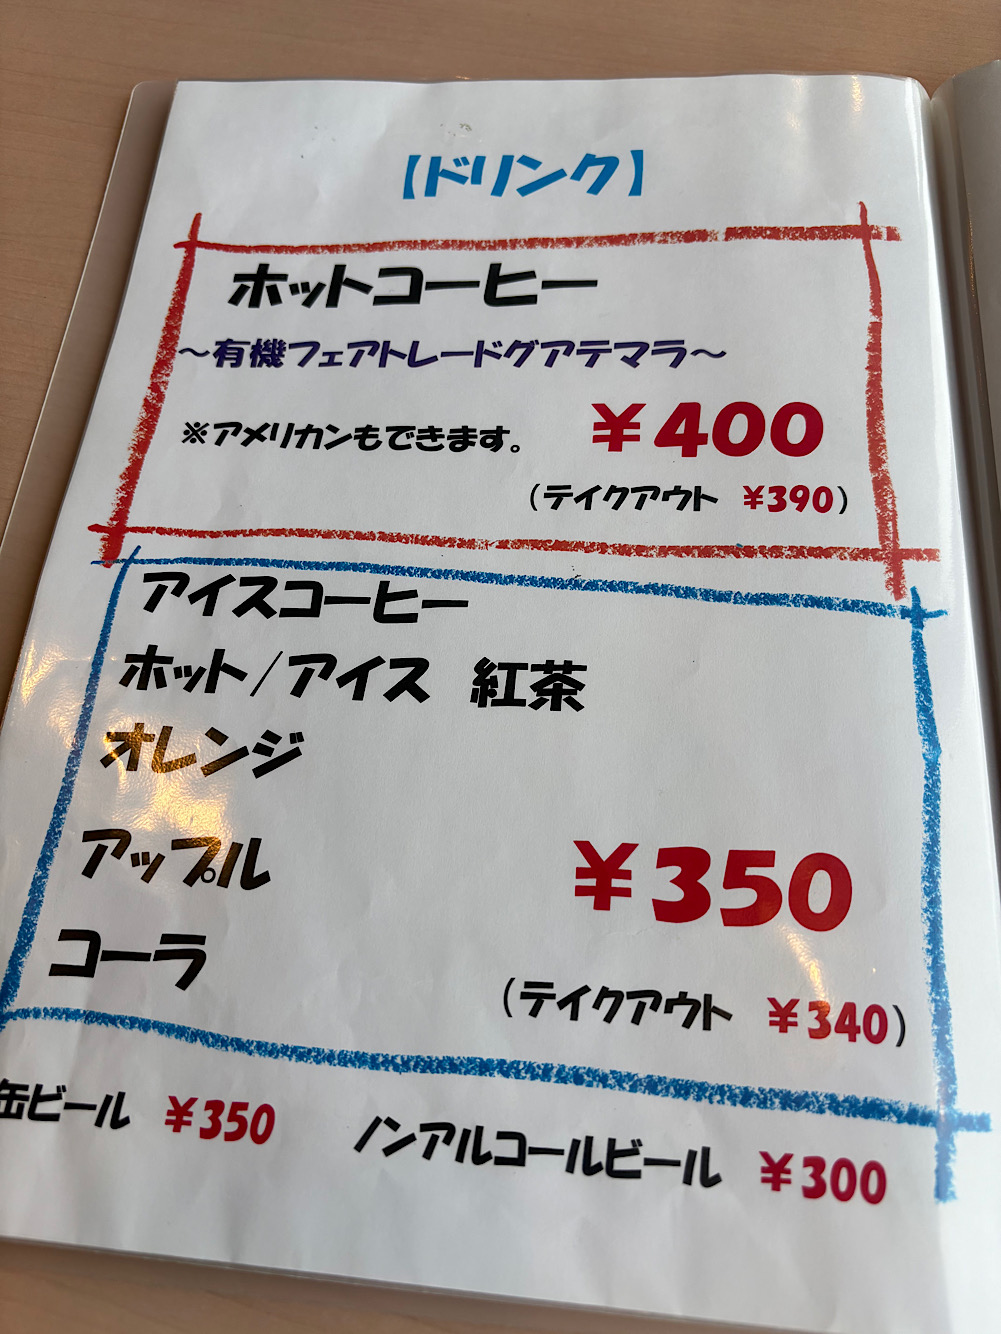 【ドリンク】
ホットコーヒー
～有機フェアトレードグアテマラ～
※アメリカンもできます。 ￥400
（テイクアウト ￥390）
アイスコーヒー
ホット/アイス 紅茶
オレンジ
アップル ￥350
コーラ
（テイクアウト ￥340）
缶ビール ￥350 ノンアルコールビール ￥300